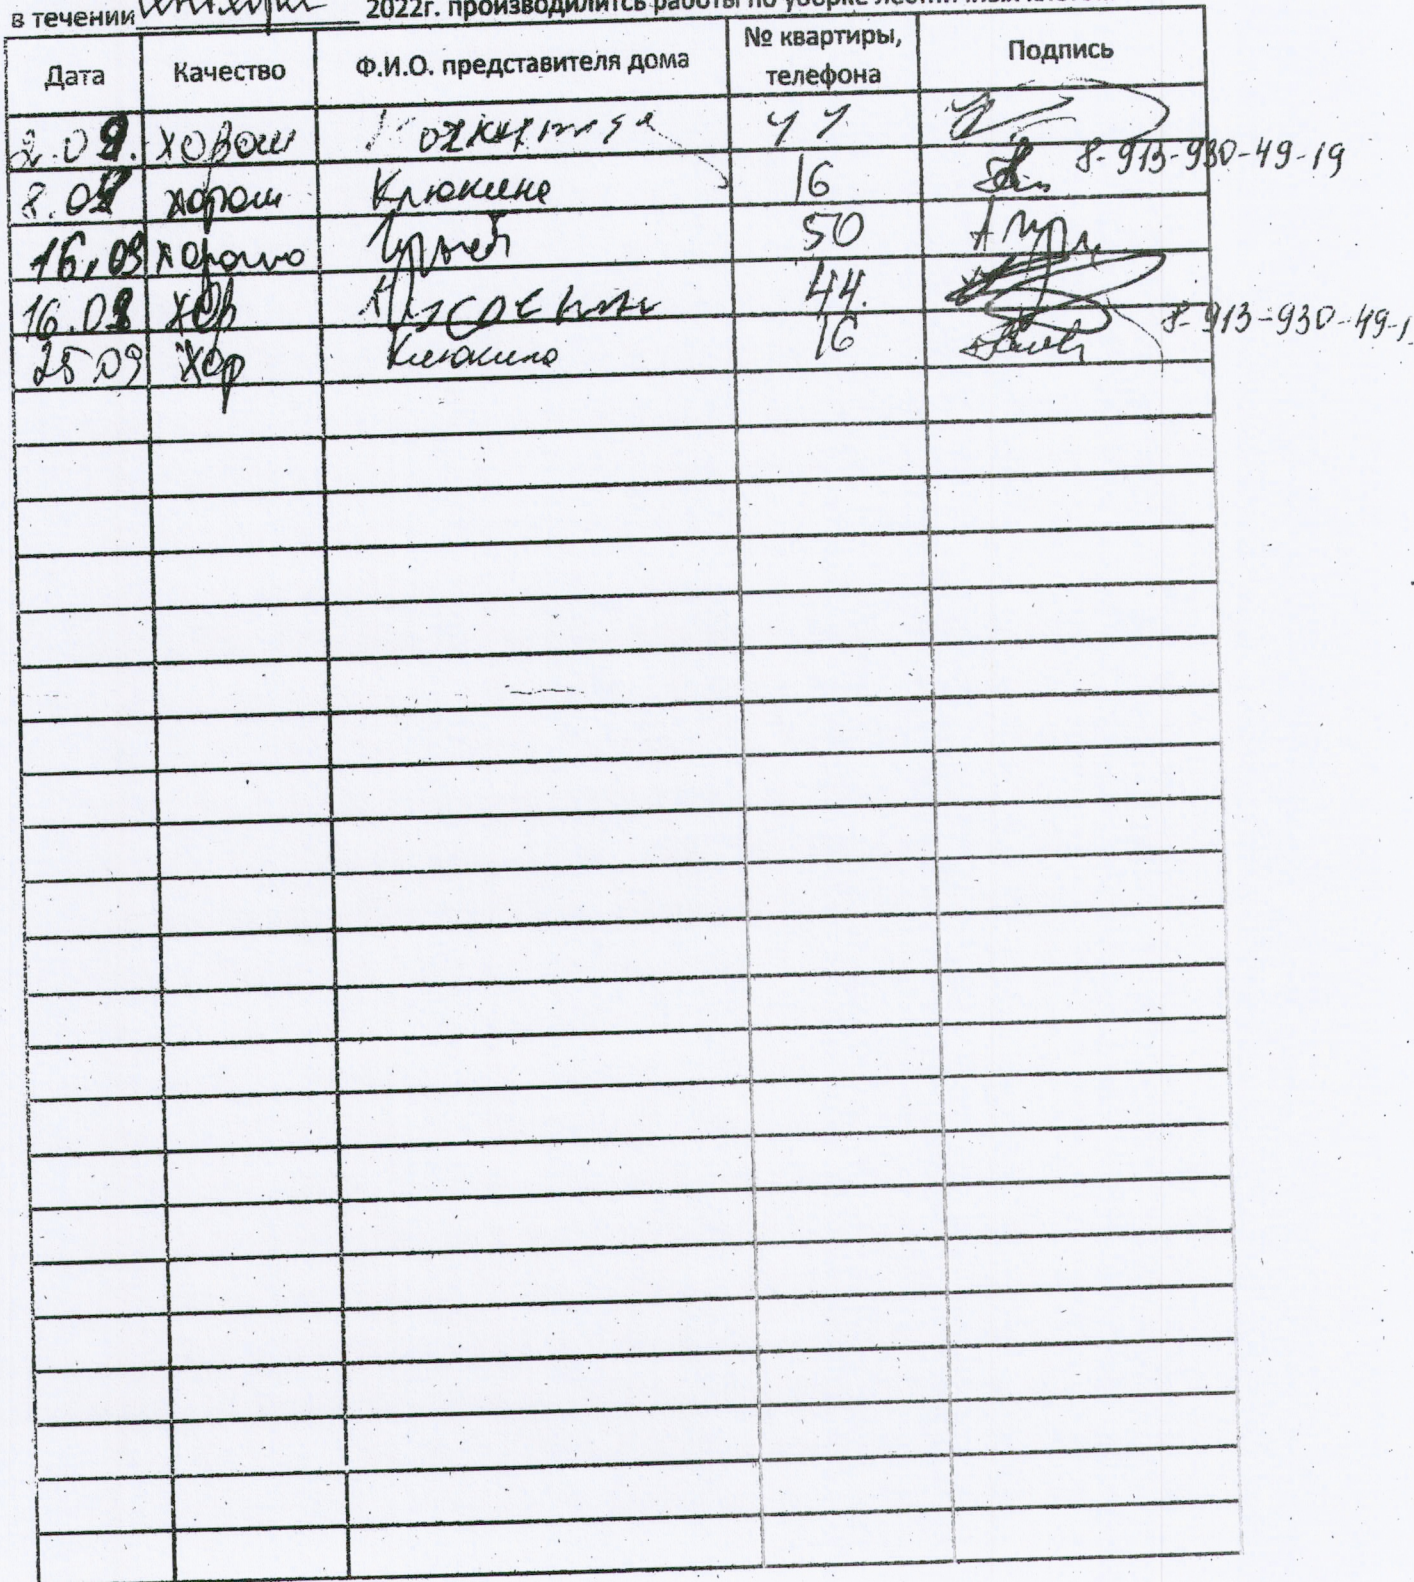 в течении сентября 2022г. производилитсь работы по уборке лестничных клеток
Дата Качество Ф.И.О. представителя дома № квартиры, телефона Подпись
2.09. хорош
8.09 хорош Клюкина 16 8-913-930-49-19
16,09 хорошо 50
16.09 хор 44.
25.09 хор Клюкина 16 8-913-930-49-1